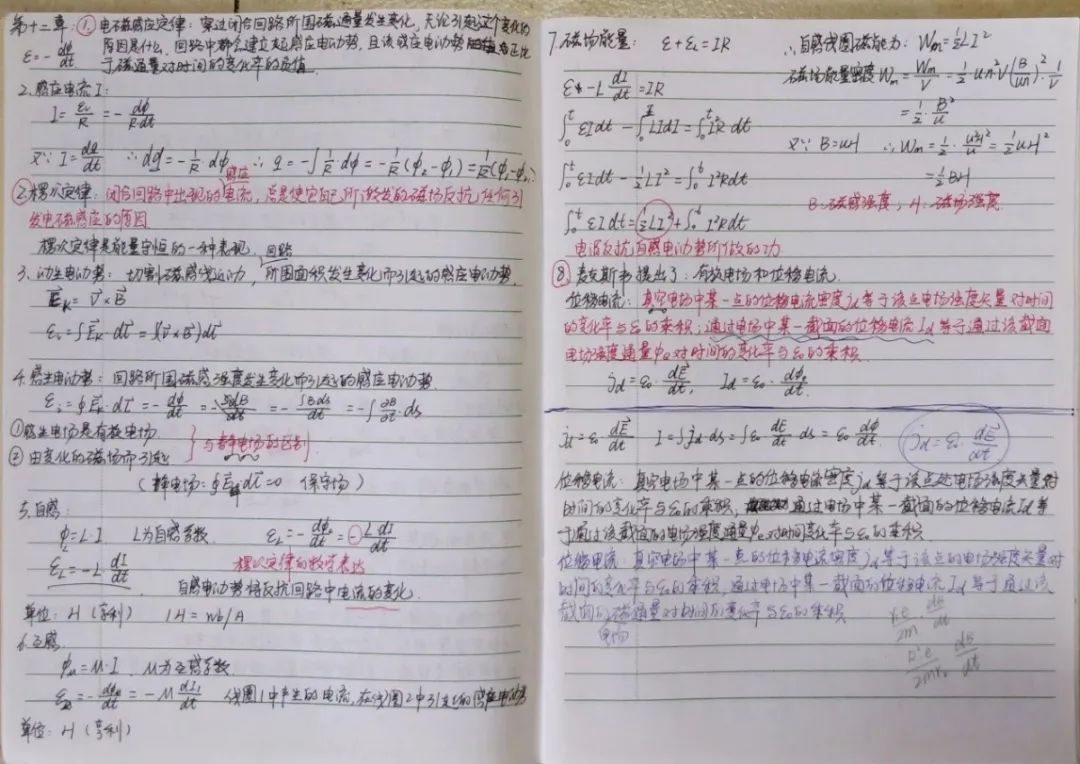 第十二章：①电磁感应定律：穿过闭合回路所围磁通量发生变化，无论引起这个变化的
原因是什么，回路中都会建立起感应电动势，且该感应电动势正比
ε=-dφ/dt
于磁通量对时间的变化率的负值
2.感应电流I：
I=εi/R=-dφ/Rdt
又∵I=dq/dt ∴dq=-1/R·dφ ∴q=-∫1/R·dφ=-1/R(φ₂-φ₁)=1/R(φ₁-φ₂)
②楞次定律：闭合回路中出现的感应电流，总是使它自己所激发的磁场反抗任何引
发电磁感应的原因
楞次定律是能量守恒的一种表现
3.动生电动势：切割磁感线运动，回路所围面积发生变化而引起的感应电动势
E⃗K=v⃗×B⃗
εi=∫E⃗K·dl⃗=∫(v⃗×B⃗)dl⃗
4.感生电动势：回路所围磁感强度发生变化而引起的感应电动势
εi=∮E⃗K·dl⃗=-dφ/dt=-∫BdS/dt=-∫∂B/∂t·ds
①感生电场是有旋电场
②由变化的磁场而引起
}与静电场的区别
（静电场：∮E⃗静dl⃗=0 保守场）
5.自感
φL=L·I L为自感系数 εL=-dφL/dt=-LdI/dt
楞次定律的数学表达
εL=-L dI/dt
自感电动势将反抗回路中电流的变化
单位：H（亨利） 1H=wb/A
6.互感
φ₂₁=M·I M为互感系数
ε₂₁=-dφ₂₁/dt=-M dI₁/dt 线圈1中产生的电流，在线圈2中引起的感应电动势
单位：H（亨利）
7.磁场能量： ε+εL=IR ∴自感线圈磁能为：Wm=½LI²
ε-L dI/dt=IR
磁场能量密度Wm=Wm/V=½un²V(B/un)²·1/V
=½·B²/u
∫₀ᵗεIdt-∫₀ᴵLIdI=∫₀ᵗI²R·dt
又∵B=uH ∴Wm=½·u²H²/u=½uH²
∫₀ᵗεIdt-½LI²=∫₀ᵗI²Rdt
=½BH
B:磁感强度，H:磁场强度
∫₀ᵗεIdt=½LI²+∫₀ᵗI²Rdt
电源反抗自感电动势所做的功
⑧麦克斯韦提出了：有旋电场和位移电流
位移电流：真空电场中某一点的位移电流密度jd等于该点电场强度矢量对时间
的变化率与ε₀的乘积；通过电场中某一截面的位移电流Id等于通过该截面
电场强度通量φe对时间的变化率与ε₀的乘积
jd=ε₀·dE⃗/dt， Id=ε₀·dφe/dt
jd=ε₀dE⃗/dt I=∫jd·ds=∫ε₀dE/dt ds=ε₀dφ/dt
jd=ε₀·dE⃗/dt
位移电流：真空电场中某一点的位移电流密度jd等于该点处电场强度矢量对
时间的变化率与ε₀的乘积，通过电场中某一截面的位移电流Id等
于通过该截面的电场强度通量φe对时间变化率与ε₀的乘积
位移电流：真空电场中某一点的位移电流密度jd等于该点的电场强度矢量对
时间的变化率与ε₀的乘积，通过电场中某一截面的位移电流Id等于通过该
截面的磁通量对时间的变化率与ε₀的乘积
电场
re/2m·dB/dt
R²e/2mr₀·dB/dt